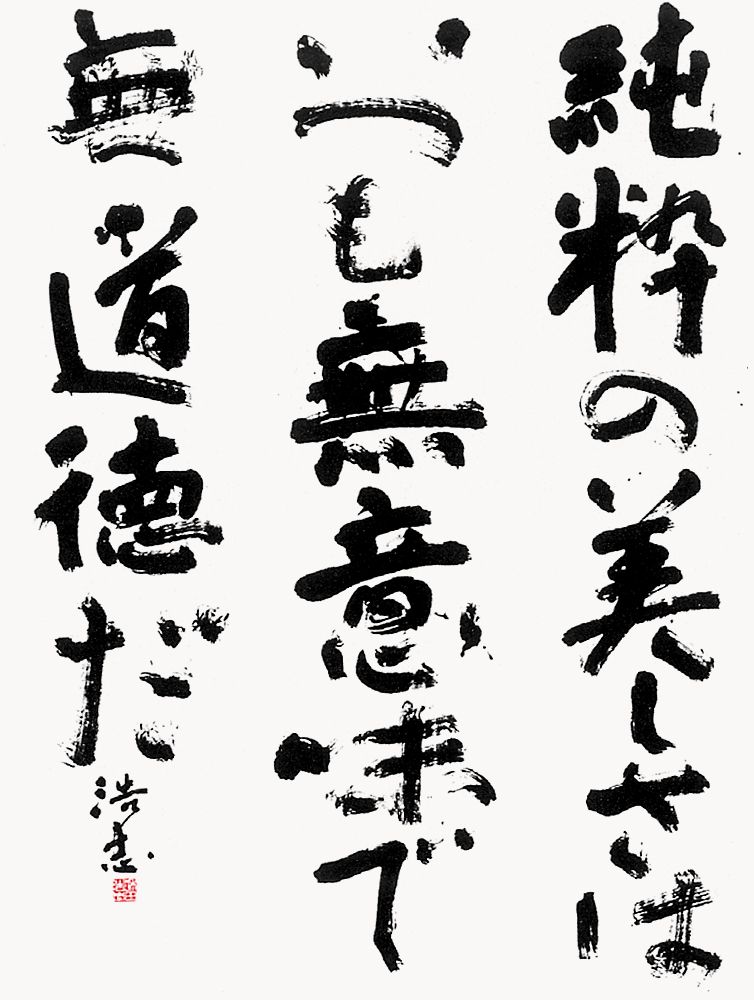 純粋の美しさは
いつも無意味で
無道徳だ
浩志